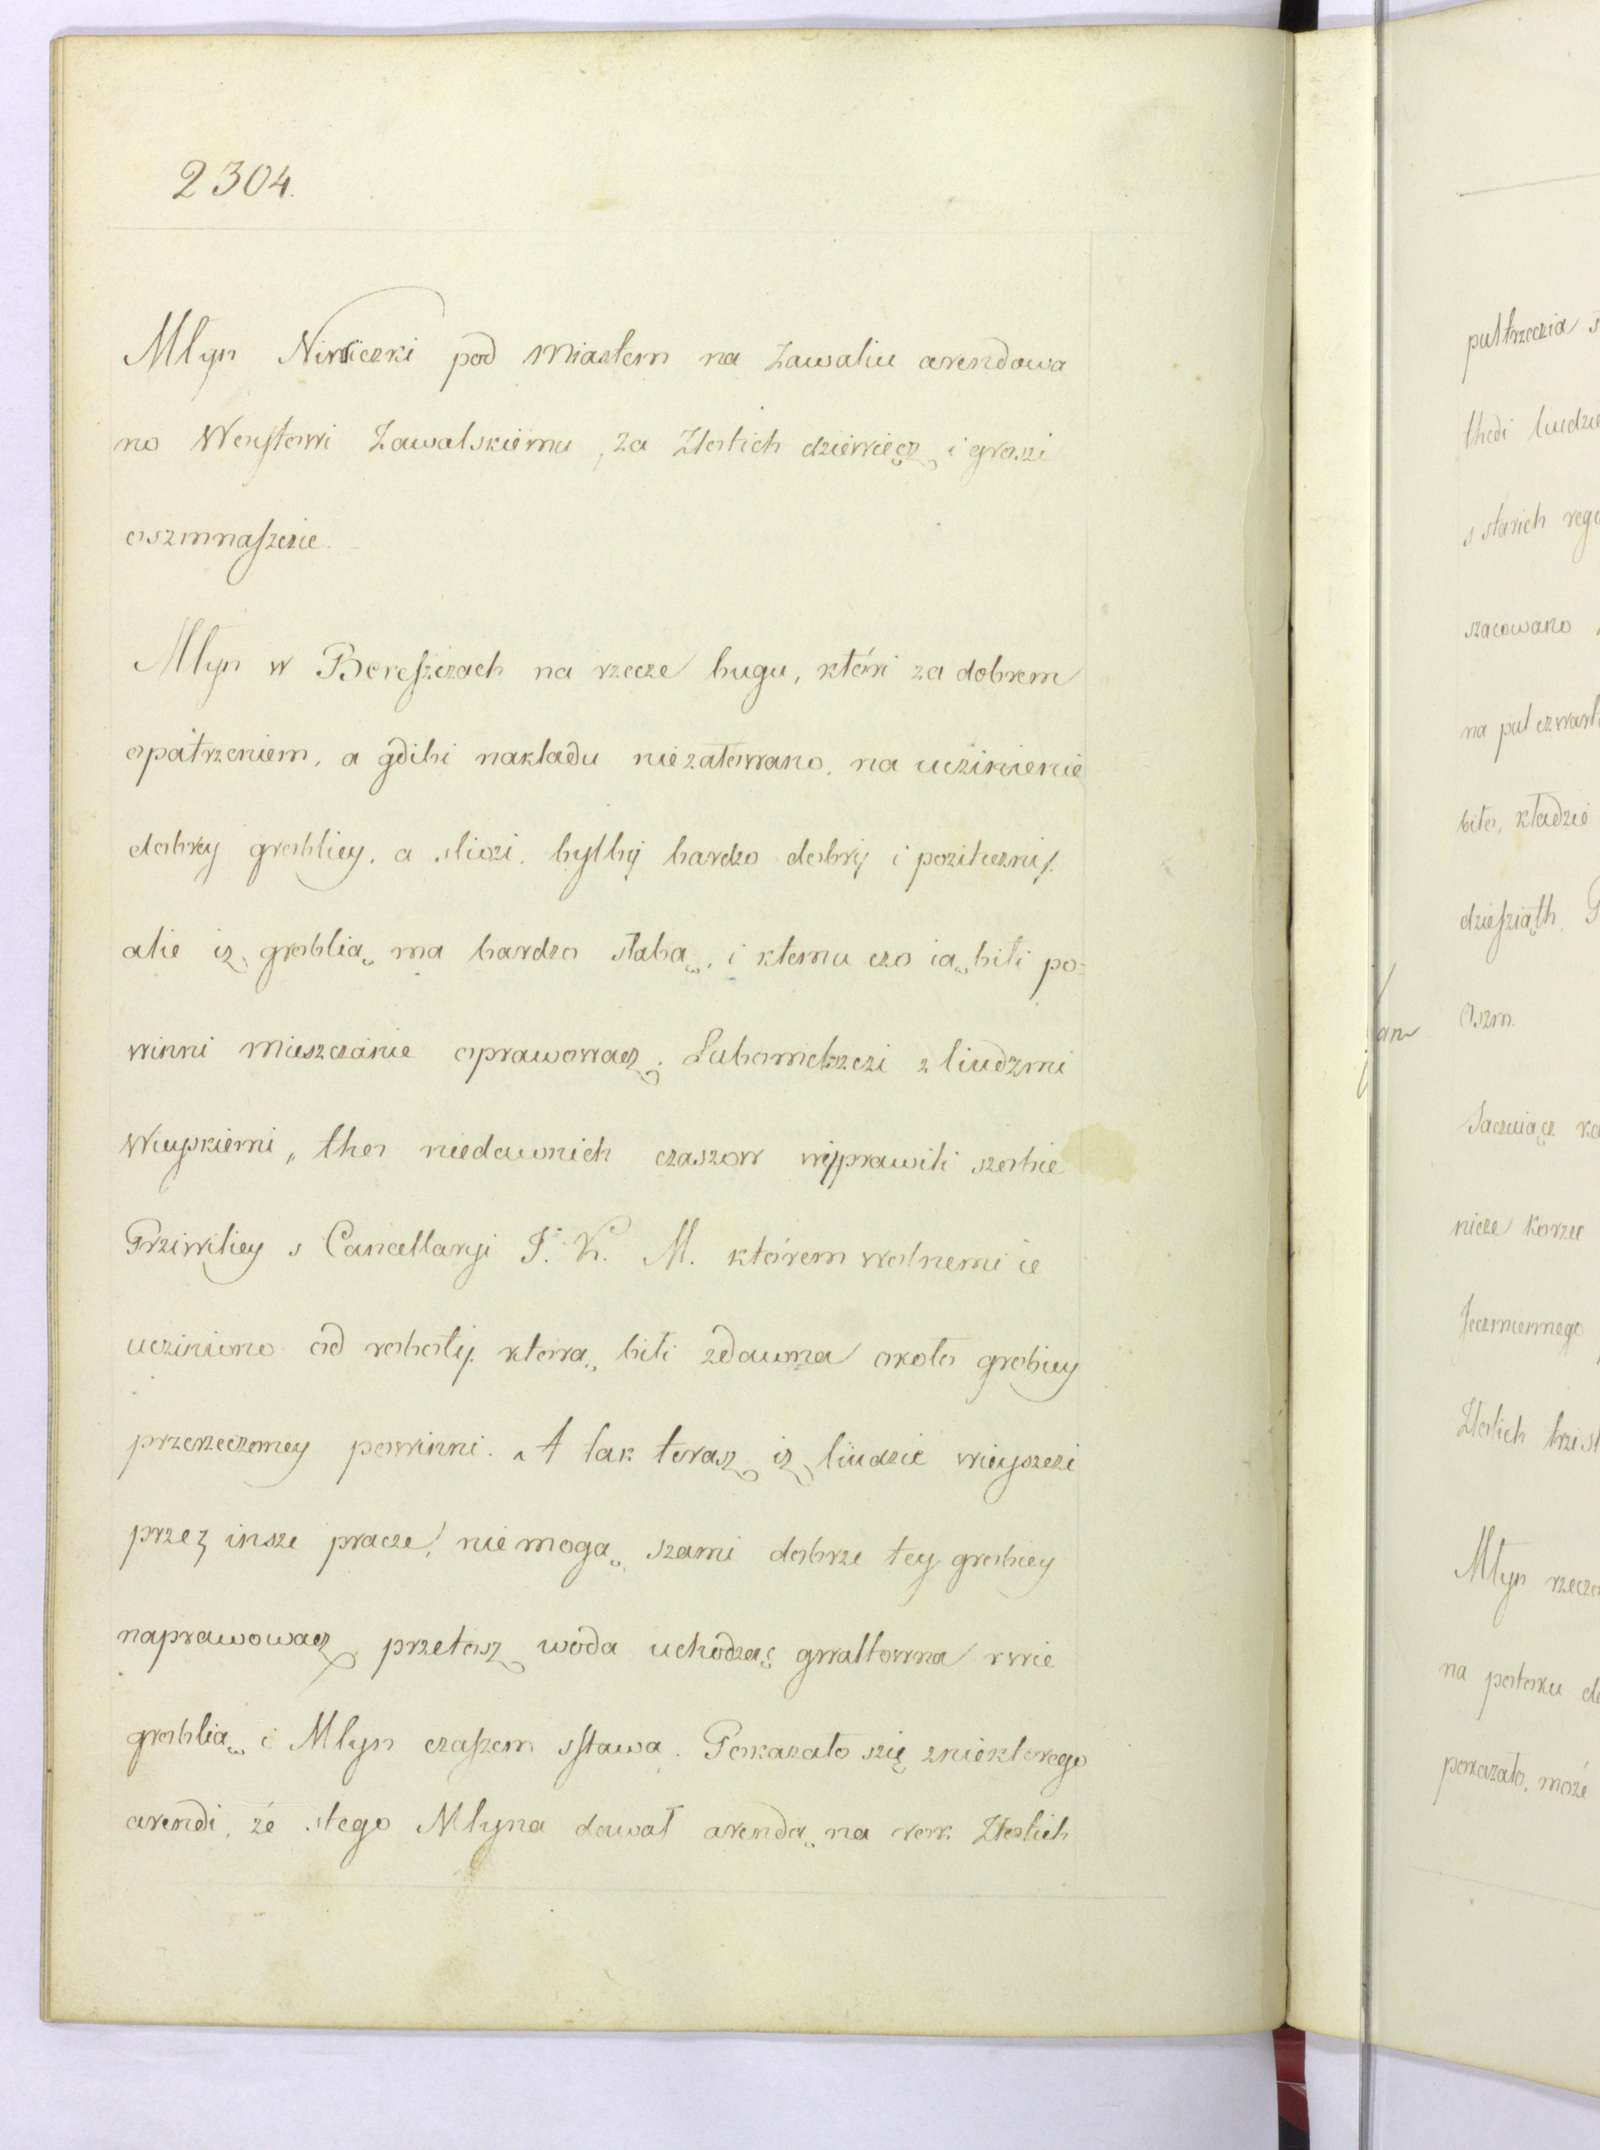 2304.
Młyn Niniczki pod Miastem na Zawaliu arendowa
no Wenstowi Zawalskiemu, za Zlotich dziewięcz i groszi
oszmnaszczie.
Młyn w Bereszczach na rzecze bugu, któri za dobrem
opatrzeniem, a gdibi nakladu niezalowano, na uczinienie
dobrey grobliey, a sliozi, bylby bardzo dobry i poziteczny.
alie iz groblią ma bardzo słabą, i ktemu czo ią bili po=
winni mieszczanie oprawowacz. Lubomelszczi z liudzmi
Wieyskiemi, tho niedawnich czaszow wyprawili szobie
Prziwiliey s Cancellaryi J. K. M. którem wolnemi ie
ucziniono od roboty, ktorą bili zdawna około grobiey
przerzeczoney powinni. A tak terasz iz liudzie wieyszczi
przez insze pracze, nie mogą szami dobrze tey grobiey
naprawowacz przetosz woda uchodząc gwaltowna rwie
groblią i Mlyn czaszem sstawa. Pokazało szię zniektorego
arendi, że stego Mlyna dawał arendą na rok Złotich
pultrzeczia
thedi ludzie
s starich
szacowano
na pul
biło, kładzie
dziesziąth.
Oszm.
nicze korzec
Jeczmiennego
Zlotich
Młyn
na potoku
pokazało, może